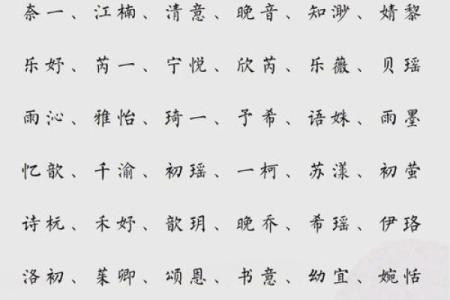 奈一、江楠、清意、晚音、知渺、婧黎
乐妤、芮一、宁悦、欣芮、乐薇、贝瑶
雨沁、雅怡、琦一、予希、语姝、雨墨
忆歆、千渝、初瑶、一柯、苏漾、初萤
诗杬、禾妤、歆玥、晚乔、希瑶、伊珞
洛初、茱卿、颂恩、书意、幼宜、婉恬